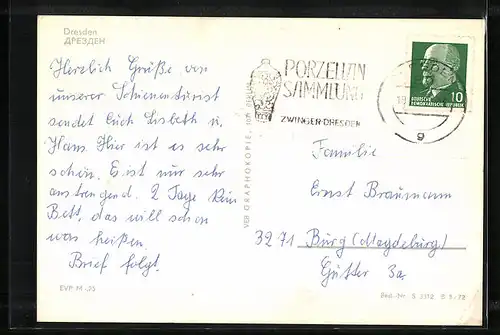 Dresden
ДРЕЗДЕН
Herzlich Grüße von
unserer
sendet Euch Lisbeth u.
Hans Hier ist es sehr
schön. Es ist nur sehr
anstrengend. 2 Tage kein
Bett, das will schon
was heißen.
Brief folgt.
EVP M -,20
VEB GRAPHOKOPIE,
PORZELLAN
SAMMLUNG
ZWINGER-DRESDEN
DEUTSCHE
DEMOKRATISCHE REPUBLIK
10
Familie
Ernst Braumann
3271 Burg (Magdeburg)
Gütter 3a
Best.-Nr. S 3112 B 5/72